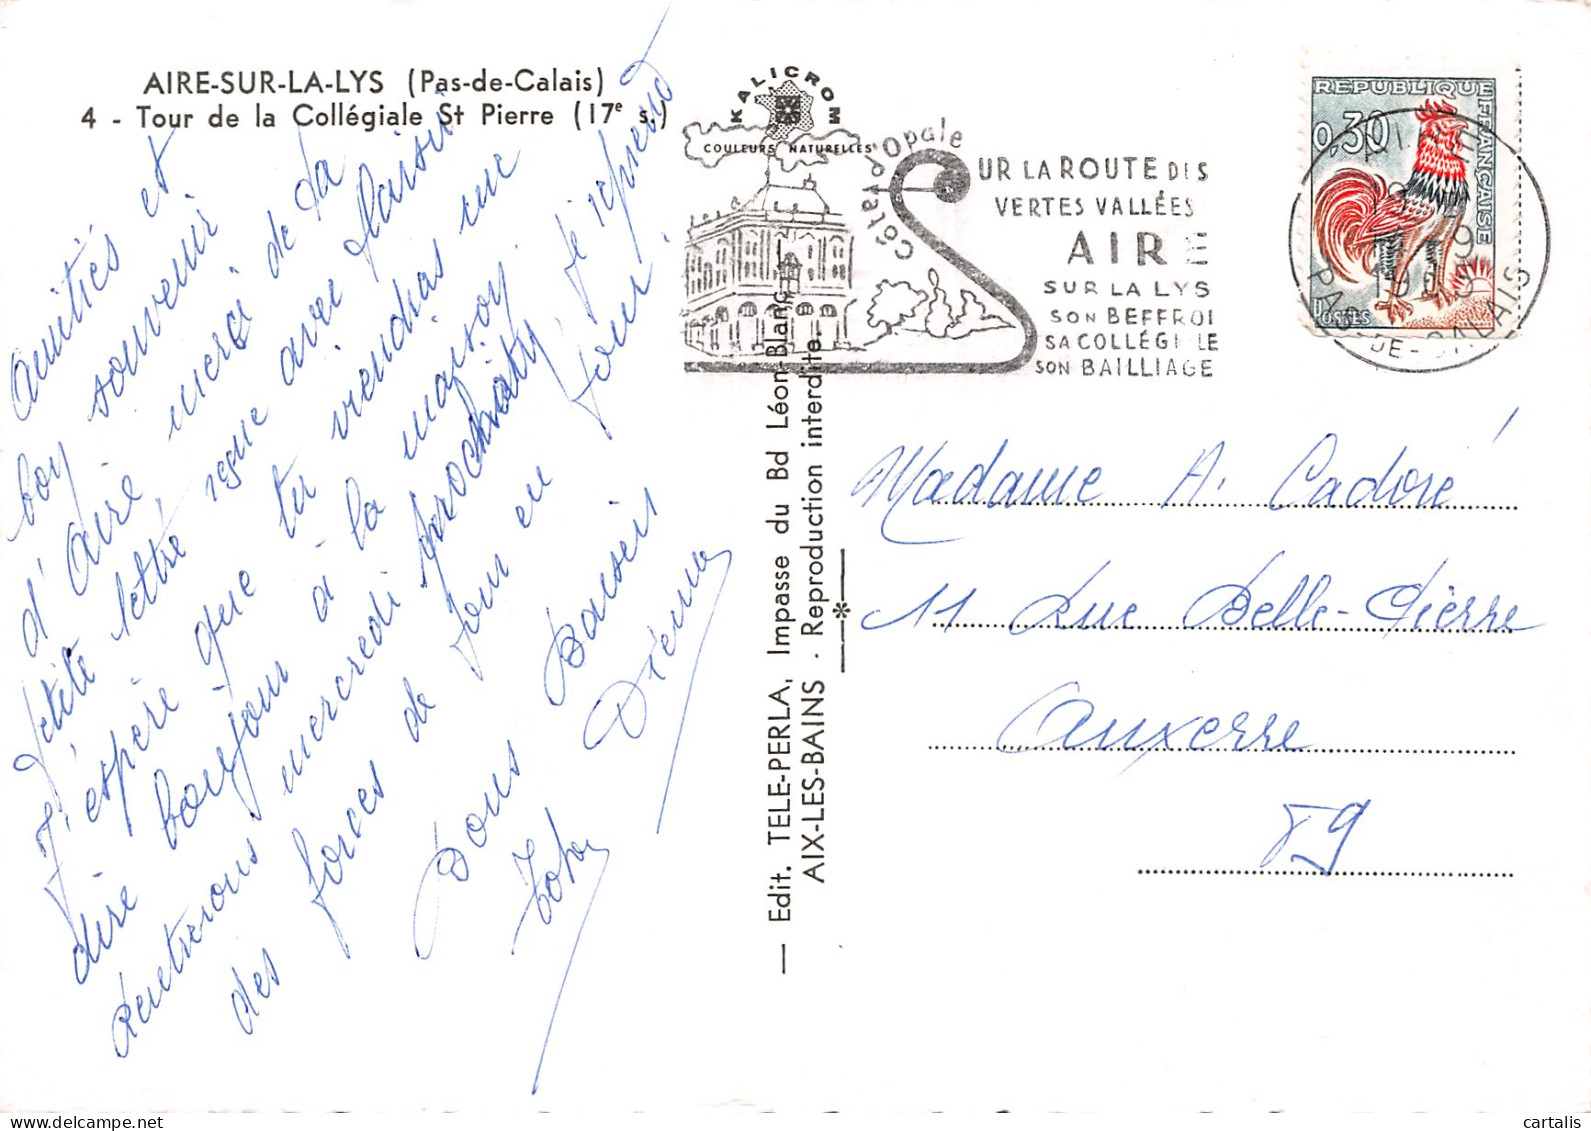 AIRE-SUR-LA-LYS (Pas-de-Calais)
4 - Tour de la Collégiale St Pierre (17e s.)
KALICROM
COULEURS NATURELLES
Amitiés et
bon souvenir
d'Aire, merci de la
petite lettre, reçue avec plaisir
J'espère que tu viendras me
dire bonjour à la maison
rentrerons mercredi prochain, je reprend
des forces de jour en jour.
Bons Baisers
Côte d'Opale
SUR LA ROUTE DES
VERTES VALLÉES
AIRE
SUR LA LYS
SON BEFFROI
SA COLLÉGI LE
SON BAILLIAGE
REPUBLIQUE FRANÇAISE
0,30
POSTES
PAS-DE-CALAIS
— Edit. TELE-PERLA, Impasse du Bd Léon-Blanc
AIX-LES-BAINS - Reproduction interdite.
Madame A. Cadoré
11 Rue Belle-Pierre
Auxerre
89
cartalis
delcampe.net